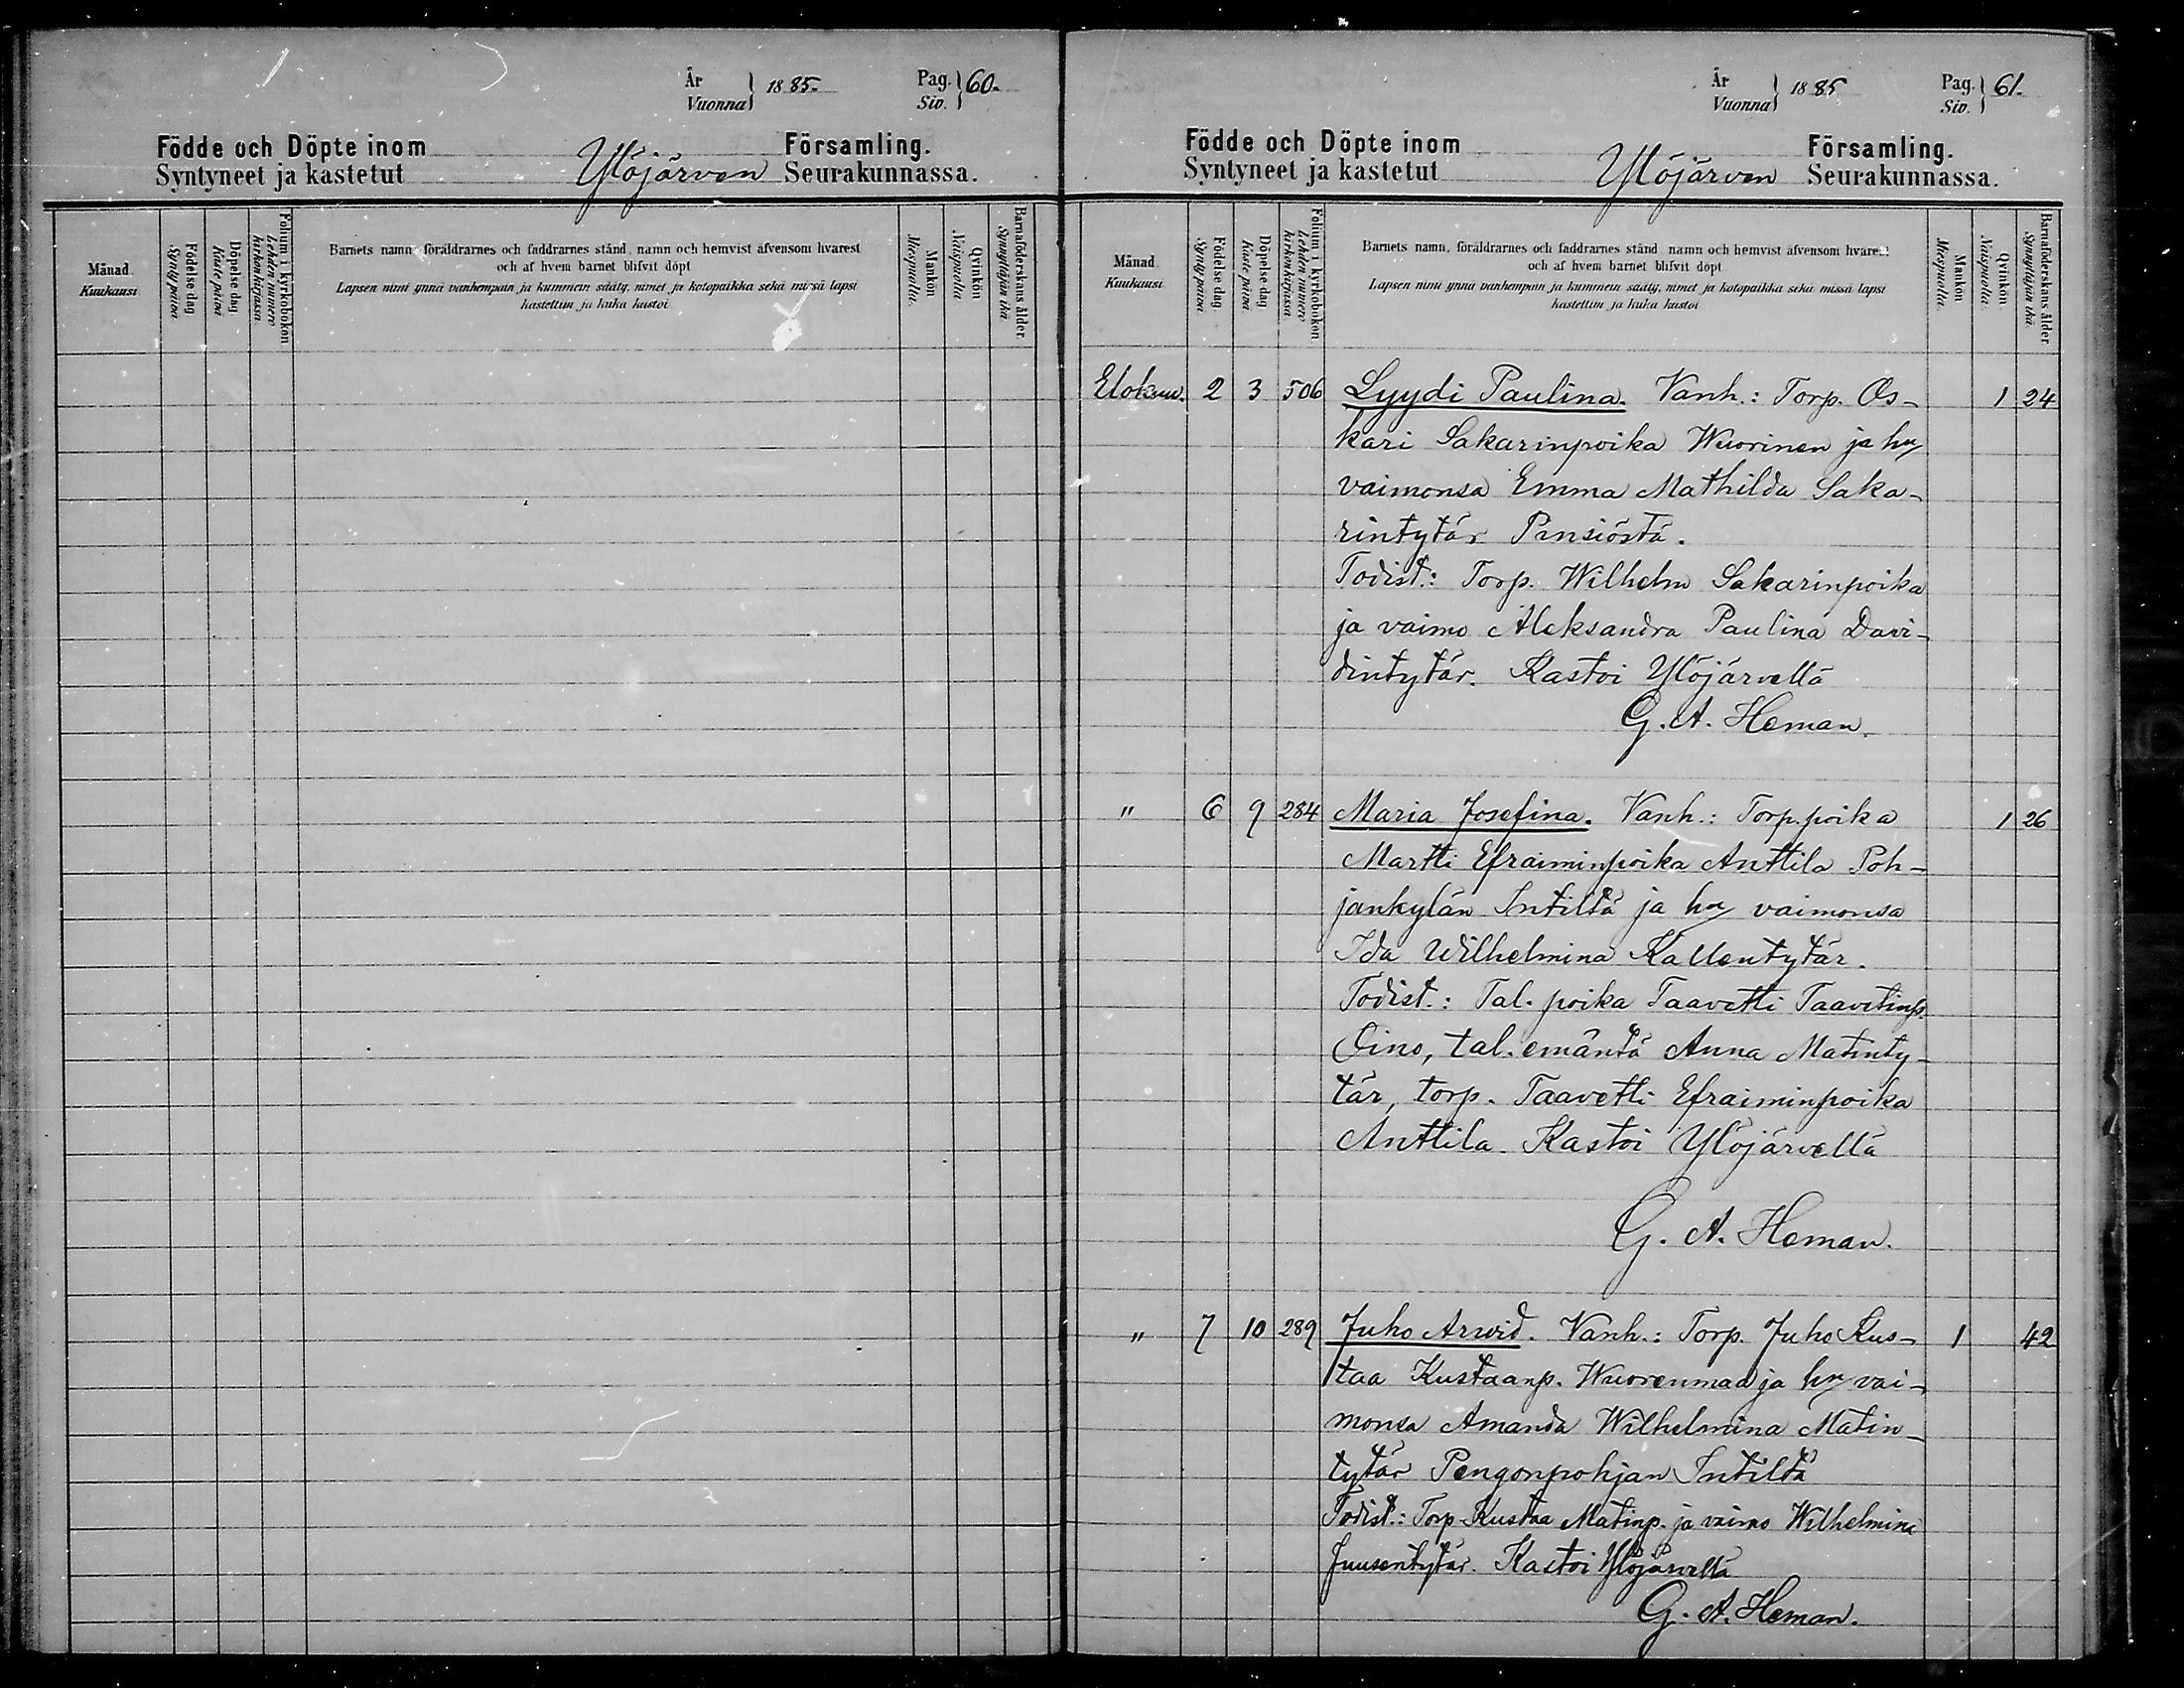 År Vuonna } 1885. Pag. Siv. } 60.
Födde och Döpte inom Församling.
Syntyneet ja kastetut Ylöjärven Seurakunnassa.
Månad Kuukausi
Födelse dag Syntypäivä
Döpelse dag Kastepäivä
Folium i kyrkoboken Lehden numero kirkonkirjassa
Barnets namn, föräldrarnes och faddrarnes stånd, namn och hemvist äfvensom hvarest
och af hvem barnet blifvit döpt
Lapsen nimi ynnä vanhempain ja kummein sääty, nimet ja kotopaikka sekä missä lapsi
kastettiin ja kuka kastoi
Mankön Miespuolia.
Qvinkön Naispuolia
Barnaföderskans ålder. Synnyttäjän ikä.
År Vuonna } 1885 Pag. Siv. } 61.
Födde och Döpte inom Församling.
Syntyneet ja kastetut Ylöjärven Seurakunnassa.
Månad Kuukausi
Födelse dag Syntypäivä
Döpelse dag Kastepäivä
Folium i kyrkoboken Lehden numero kirkonkirjassa
Barnets namn, föräldrarnes och faddrarnes stånd, namn och hemvist äfvensom hvarest
och af hvem barnet blifvit döpt
Lapsen nimi ynnä vanhempain ja kummein sääty, nimet ja kotopaikka sekä missä lapsi
kastettiin ja kuka kastoi
Mankön Miespuolia.
Qvinkön Naispuolia.
Barnaföderskans ålder Synnyttäjän ikä
Elokuu. 2 3 506 Lyydi Paulina. Vanh.: Torp. Os- 1 24
kari Sakarinpoika Wuorinen ja hn
vaimonsa Emma Mathilda Saka-
rintytär Pinsiöstä.
Todist.: Torp. Wilhelm Sakarinpoika
ja vaimo Aleksandra Paulina Davi-
dintytär. Kastoi Ylöjärvellä
G. A. Heman.
" 6 9 284 Maria Josefina. Vanh.: Torp. poika 1 26
Martti Efraiminpoika Anttila Poh-
jankylän Intiltä ja hn vaimonsa
Ida Wilhelmina Kallentytär.
Todist.: Tal. poika Taavetti Taavetinp.
Oino, tal. emäntä Anna Matinty-
tär, torp. Taavetti Efraiminpoika
Anttila. Kastoi Ylöjärvellä
G. A. Heman.
" 7 10 289 Juho Arwid. Vanh.: Torp. Juho Kus- 1 42
taa Kustaanp. Wuorenmaa ja hn vai-
monsa Amanda Wilhelmina Matin-
tytär Pengonpohjan Intiltä
Todist.: Torp. Kustaa Matinp. ja vaimo Wilhelmina
Juusentytär. Kastoi Ylöjärvellä
G. A. Heman.